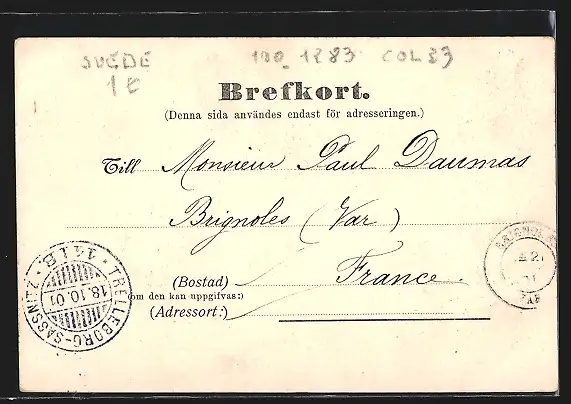 SUEDE 100_1283 COL83
1E
Brefkort.
(Denna sida användes endast för adresseringen.)
Till Monsieur Paul Daumas
Brignoles (Var)
(Bostad) France.
(om den kan uppgifvas:)
(Adressort:)
TRELLEBORG-SASSNITZ
141B
18.10.01